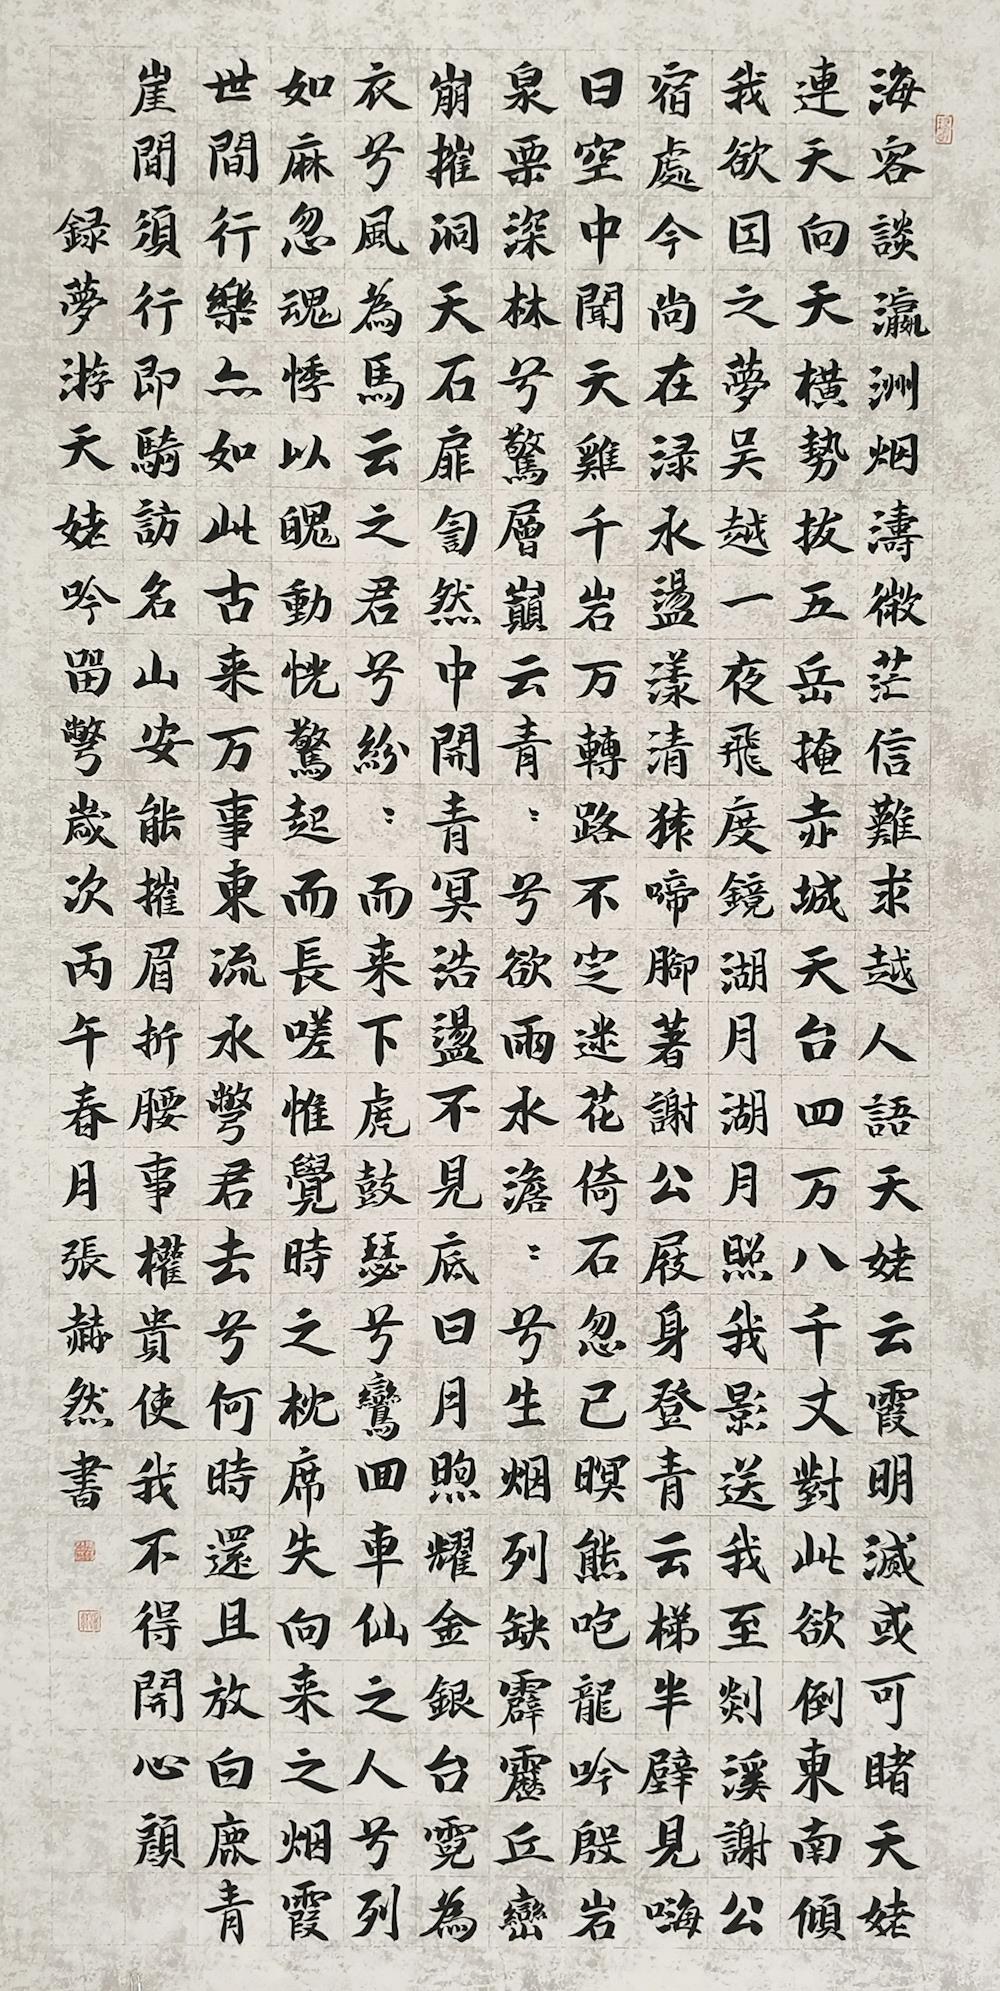 海客談瀛洲烟濤微茫信難求越人語天姥云霞明滅或可睹天姥
連天向天橫勢拔五岳掩赤城天台四万八千丈對此欲倒東南傾
我欲因之夢吴越一夜飛度鏡湖月湖月照我影送我至剡溪謝公
宿處今尚在渌水盪漾清猿啼腳著謝公屐身登青云梯半壁見海
日空中聞天雞千岩万轉路不定迷花倚石忽已暝熊咆龍吟殷岩
泉栗深林兮驚層巔云青：兮欲雨水澹：兮生烟列缺霹靂丘巒
崩摧洞天石扉訇然中開青冥浩盪不見底日月照耀金銀台霓為
衣兮風為馬云之君兮紛：而来下虎鼓瑟兮鸞回車仙之人兮列
如麻忽魂悸以魄動恍驚起而長嗟惟覺時之枕席失向来之烟霞
世間行樂亦如此古来万事東流水彆君去兮何時還且放白鹿青
崖間須行即騎訪名山安能摧眉折腰事權貴使我不得開心顔
録夢游天姥吟留彆歲次丙午春月張赫然書